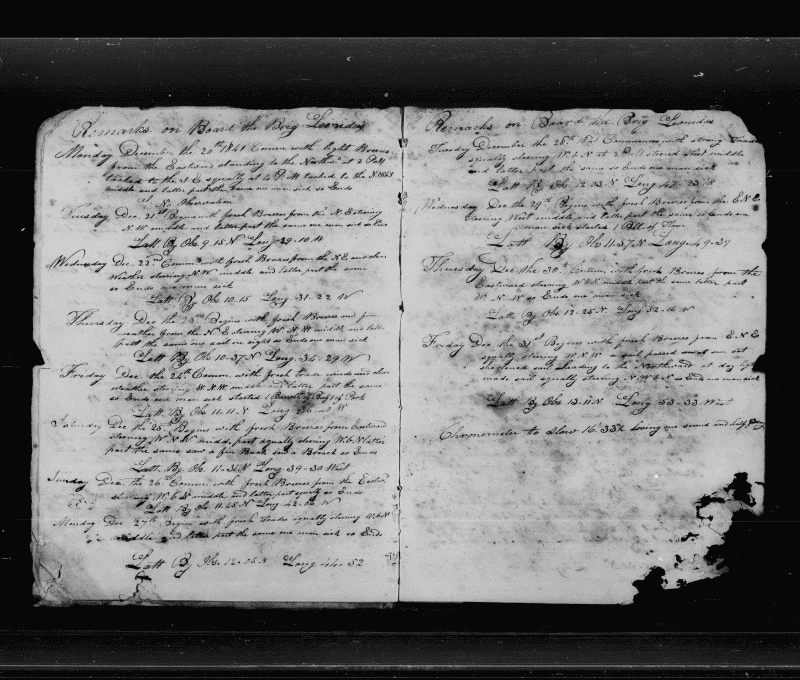 Remarks on Board the Brig Leonidas
Monday December the 20th 1841 Comm. with light Breezes
from the Eastward standing to the North at 2 PM
tacked to the S E at 4 P M tacked to the
middle and latter part the same one man sick so Ends
No Observation
Tuesday Dec 21st Begins with fresh Breezes from the N E steering
N.W. middle and latter part the same one man sick so Ends
Latt By Obs 9.15 N Long 29.10 W
Wednesday Dec. 22nd Comm. with fresh Breezes from the N E and clear
Weather steering N.W. middle and latter part the same
so Ends one man sick
Latt By Obs 10.15 Long. 31.22 W
Thursday Dec the 23rd Begins with fresh Breezes and fine
weather from the N E steering W.N.W middle and latter
part the same one sail in sight so Ends one man sick
Latt By Obs 10.37 N Long. 34-29 W
Friday Dec the 24th Comm. with fresh trade winds and clear
weather steering W.N.W middle and latter part the same
so Ends one man sick started 1 Barrell of Beef 1 of Pork
Latt By Obs 11.11 N Long. W
Saturday Dec the 25th Begins with fresh Breezes from Eastward
steering W.N.W midd. part squally steering W.b.N latter
part the same saw a fin Back saw a Breach so Ends
Latt. By. Obs. 11-31 N Long-39-30 West
Sunday Dec. the 26th Comm. with fresh Breezes from the Eastw.
steering W.b.N middle and latter part squaly so Ends
Latt By Obs 11.45 N Long 42. W
Monday Dec 27th Begins with fresh Trades squally steering W.b.N
middle and latter part the same one man sick so Ends
Latt By Obs. 12-06 N Long 44-52
Remarks on Board the Brig Leonidas
Tuesday December the 28th 1841 Commences with strong Trades
squally steering W.b.N at 2 PM steered West middle
and latter part the same so Ends one man sick
Latt By Obs 12.03 N Long 47-23 W
Wednesday Dec the 29th Begins with fresh Breezes from the E.N.E
steering West middle and latter part the same so Ends one
man sick started 1 Bbl of Flour
Latt By Obs 11-57 N Long-49-39
Thursday Dec the 30th Comm. with fresh Breezes from the
Eastward steering W.b.N. middle part the same latter part
W.N.W so Ends one man sick
Latt By Obs 12-25 N Long. 52-16 W
Friday Dec the 31st Begins with fresh Breezes from E.N.E
squally steering W.N.W a sail passed at sun set
shortened sail heading to the Northward at day light
made sail squally steering N.W.b.N so Ends one man sick
Latt By Obs 13-11 N Long 53-33 West
Chronometer to slow 16.33h loosing one second and half